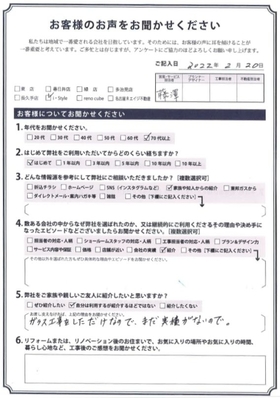 お客様のお声をお聞かせください
私たちは地域で一番愛される会社を目指しています。そのためには、お客様の声に耳を傾けることが
一番重要と考えています。ご多忙とは存じますが、アンケートにご協力のほどよろしくお願いいたします。
ご記入日 2022年 2月 20日
東店 春日井店 緑店 多治見店
長久手店 i-Style reno cube 名古屋キエイブ不動産
藤澤
お客様についてお聞かせください
1. 年代をお聞かせください。
20代 30代 40代 50代 60代 70代以上
2. はじめて弊社をご利用いただいてからどのくらい経ちますか?
はじめて 1年以内 3年以内 5年以内 10年以内 10年以上
3. どんな情報源を参考にして弊社にご相談いただきましたか?【複数選択可】
折込チラシ ホームページ SNS(インスタグラムなど) 家族や知人からの紹介 東邦ガスから
ダイレクトメール・案内ハガキ等 雑誌 その他(下欄にご記入ください)
4. 数ある会社の中からなぜ弊社を選ばれたのか、又は継続的にご利用くださるその理由や決め手に
なったエピソードなどございましたらお聞かせください。【複数選択可】
担当者の対応・人柄 ショールームスタッフの対応・人柄 工事担当者の対応・人柄 プラン&デザイン力
サービス内容や保証 価格 店舗が近い 会社の実績 紹介 その他(下欄にご記入ください)
5. 弊社をご家族や親しいご友人に紹介したいと思いますか?
ぜひ紹介したい 自分は利用するが紹介するほどではない 紹介したくない
ガラス工事をしただけなので、まだ実績がないので。
6. リフォームまたは、リノベーション後のお住まいで、お気に入りの場所やお気に入りの時間、
暮らし心地など、工事後のご感想をお聞かせください。